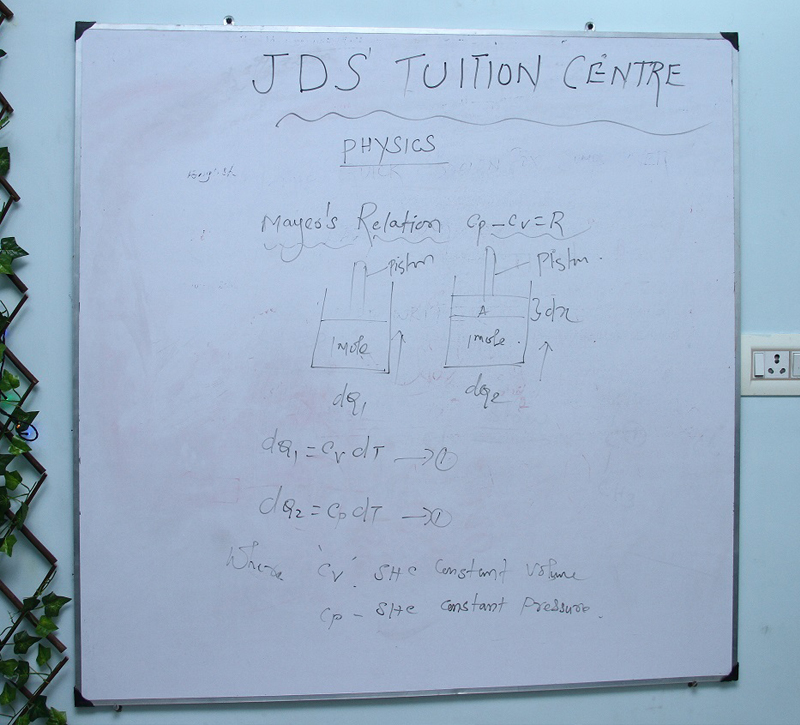 JDS' TUITION CENTRE
PHYSICS
Mayeo's Relation Cp - Cv = R
piston piston
A }dx
1 mole 1 mole
dQ1 dQ2
dQ1 = Cv dT → ①
dQ2 = Cp dT → ①
Where 'Cv' SHC Constant Volume
Cp - SHC constant Pressure.